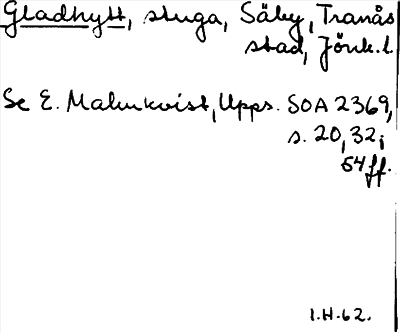 Gladhytt, stuga, Säby, Tranås
stad, Jönk. l.
Se E. Malmkvist, Upps. SOA 2369,
s. 20, 32;
54 ff.
1.H.62.